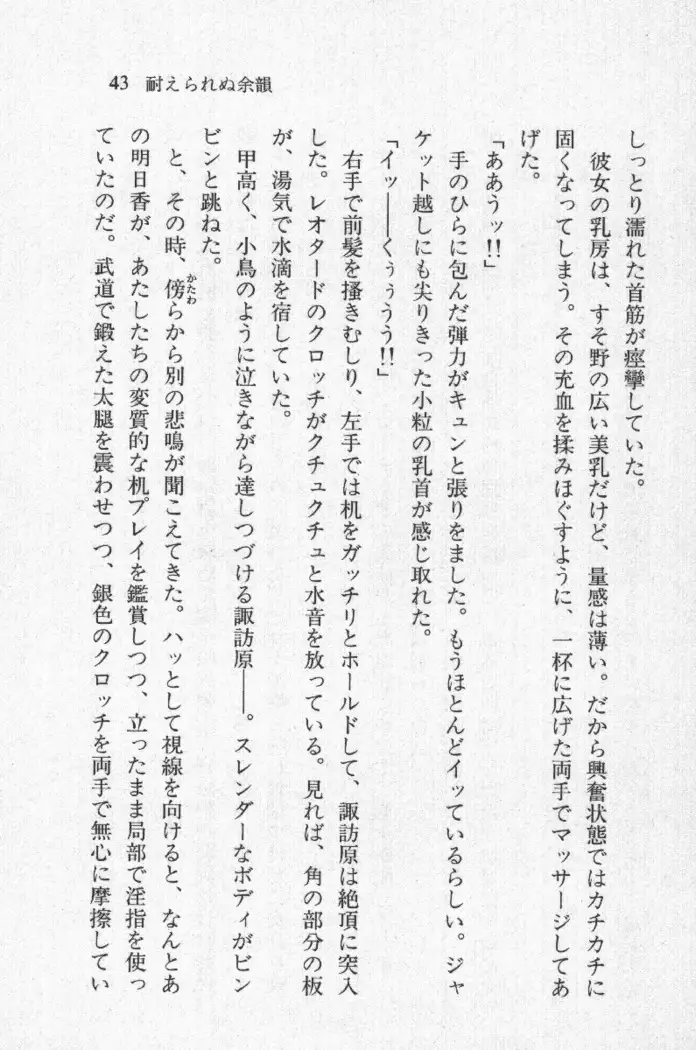 43 耐えられぬ余韻
しっとり濡れた首筋が痙攣していた。
彼女の乳房は、すそ野の広い美乳だけど、量感は薄い。だから興奮状態ではカチカチに
固くなってしまう。その充血を揉みほぐすように、一杯に広げた両手でマッサージしてあ
げた。
「ああうッ!!」
手のひらに包んだ弾力がキュンと張りをました。もうほとんどイッているらしい。ジャ
ケット越しにも尖りきった小粒の乳首が感じ取れた。
「イッ――くぅぅうう!!」
右手で前髪を掻きむしり、左手では机をガッチリとホールドして、諏訪原は絶頂に突入
した。レオタードのクロッチがクチュクチュと水音を放っている。見れば、角の部分の板
が、湯気で水滴を宿していた。
甲高く、小鳥のように泣きながら達しつづける諏訪原――。スレンダーなボディがビン
ビンと跳ねた。
と、その時、傍らから別の悲鳴が聞こえてきた。ハッとして視線を向けると、なんとあ
かたわ
の明日香が、あたしたちの変質的な机プレイを鑑賞しつつ、立ったまま局部で淫指を使っ
ていたのだ。武道で鍛えた太腿を震わせつつ、銀色のクロッチを両手で無心に摩擦してい